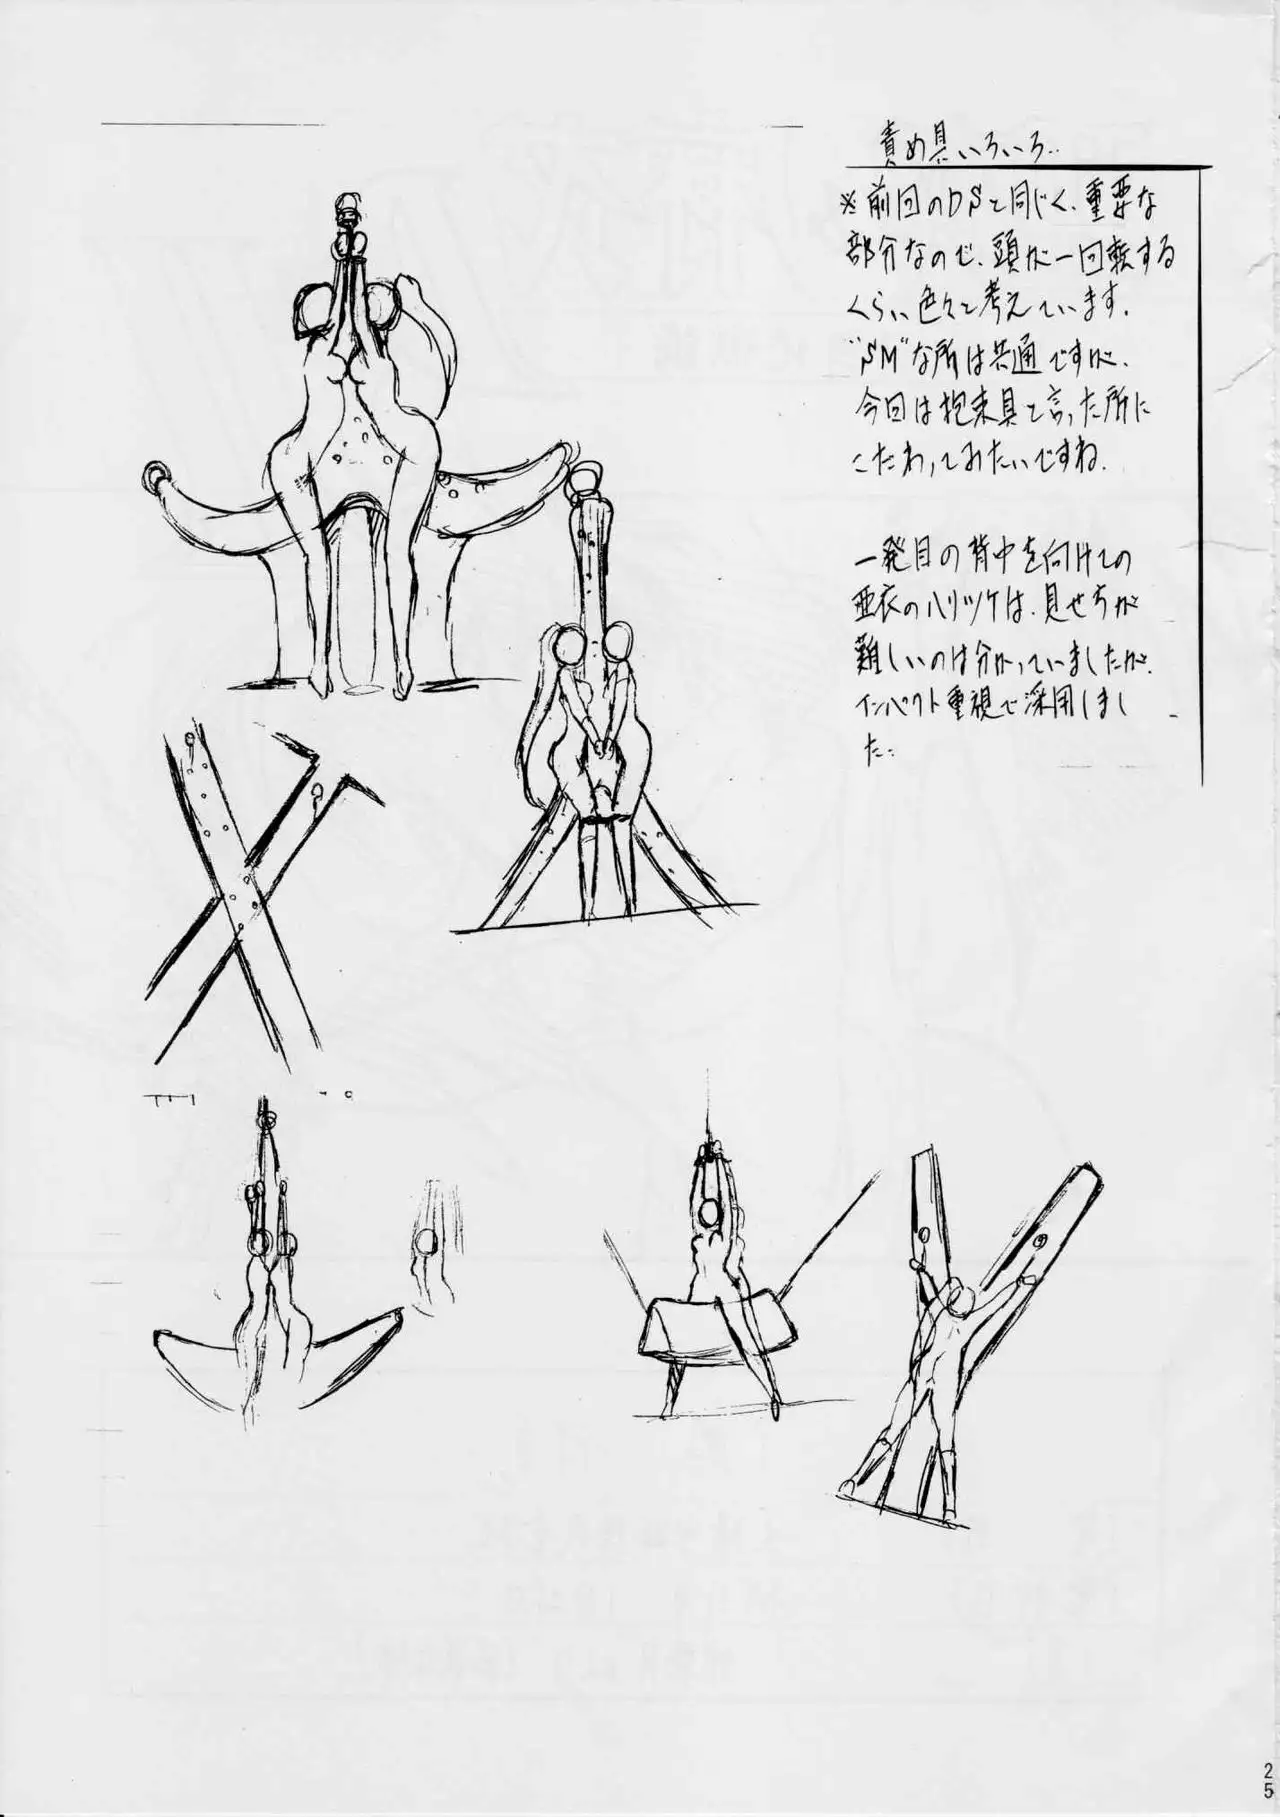 責め具いろいろ‥
※前回のDSと同じく、重要な
部分なので、頭が一回転する
くらい色々と考えています.
"SM"な所は共通ですが、
今回は拘束具と言った所に
こだわってみたいですね.
一発目の背中を向けての
亜衣のハリツケは、見せ方が
難しいのは分かっていましたが、
インパクト重視で採用しまし
た‥
25